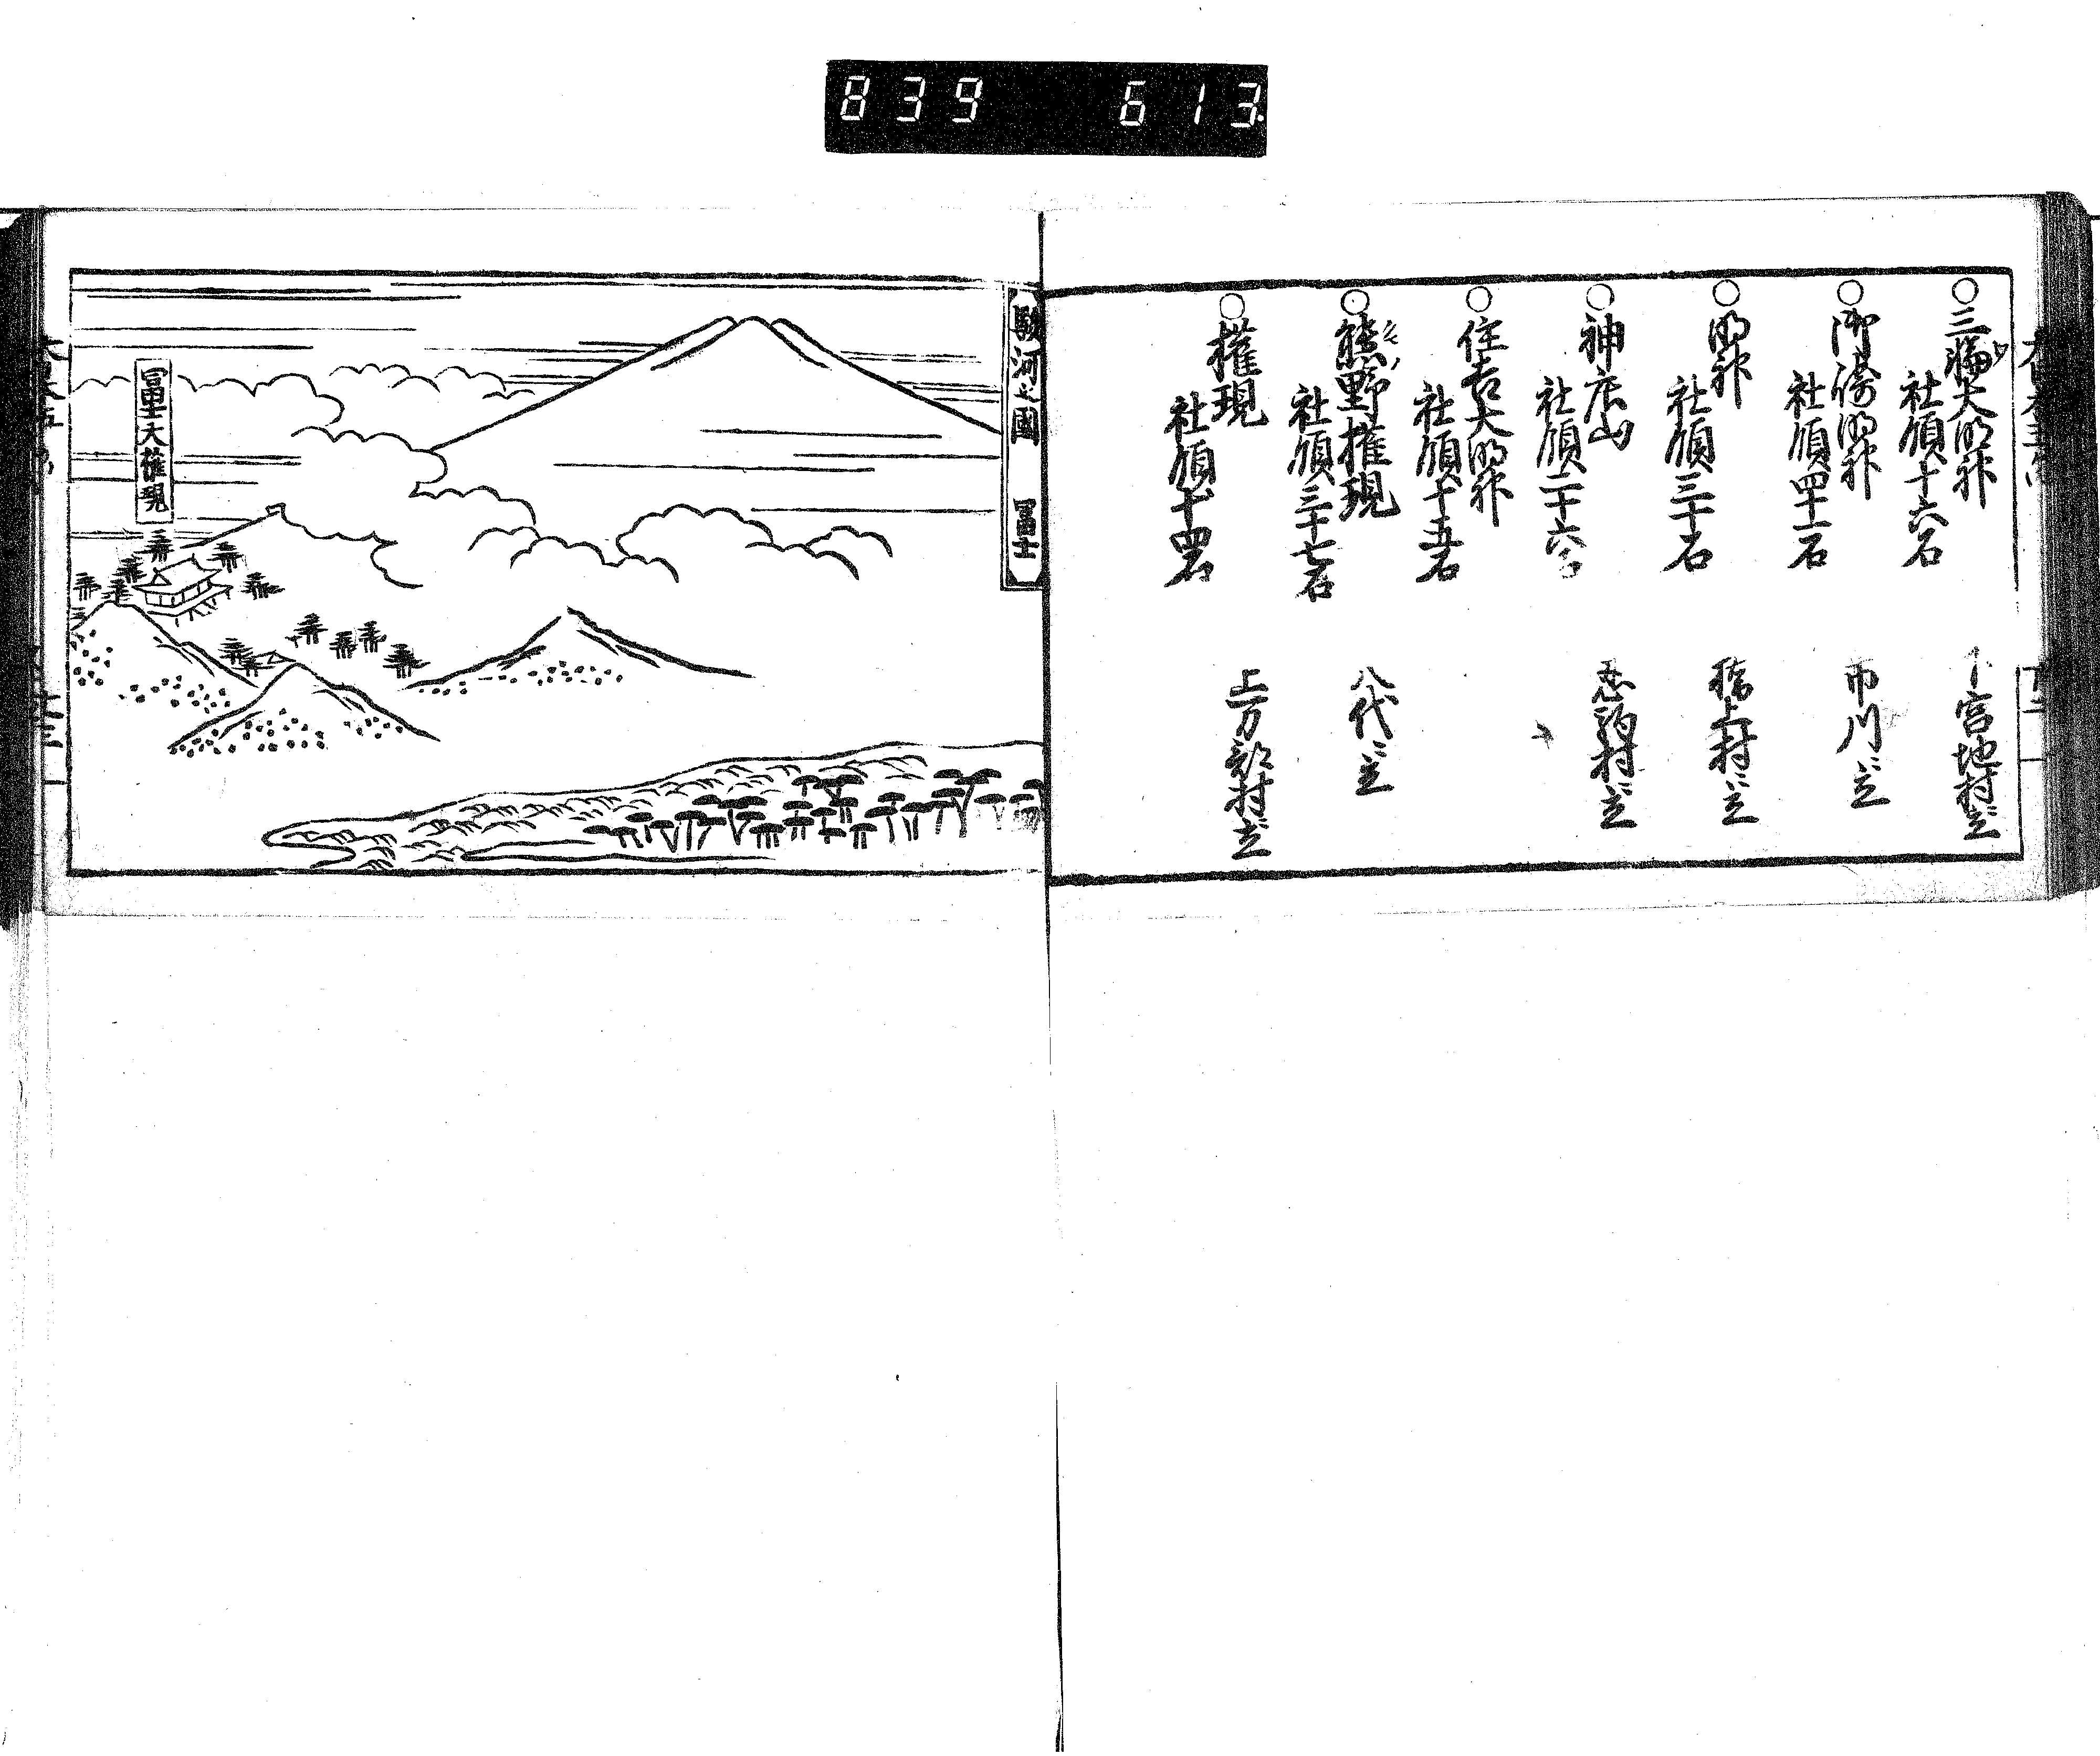 839 613
○三輪大明神
社領十六石
下宮地村ニ立
○御崎明神
社領四十一石
市川ニ立
○明神
社領三十石
橋上村ニ立
○神座山
社領二十六石
○住吉大明神
社領十五石
○熊野権現
社領三十七石
八代ニ立
○権現
社領十四石
上万部村ニ立
駿河之國 冨士
冨士大権現